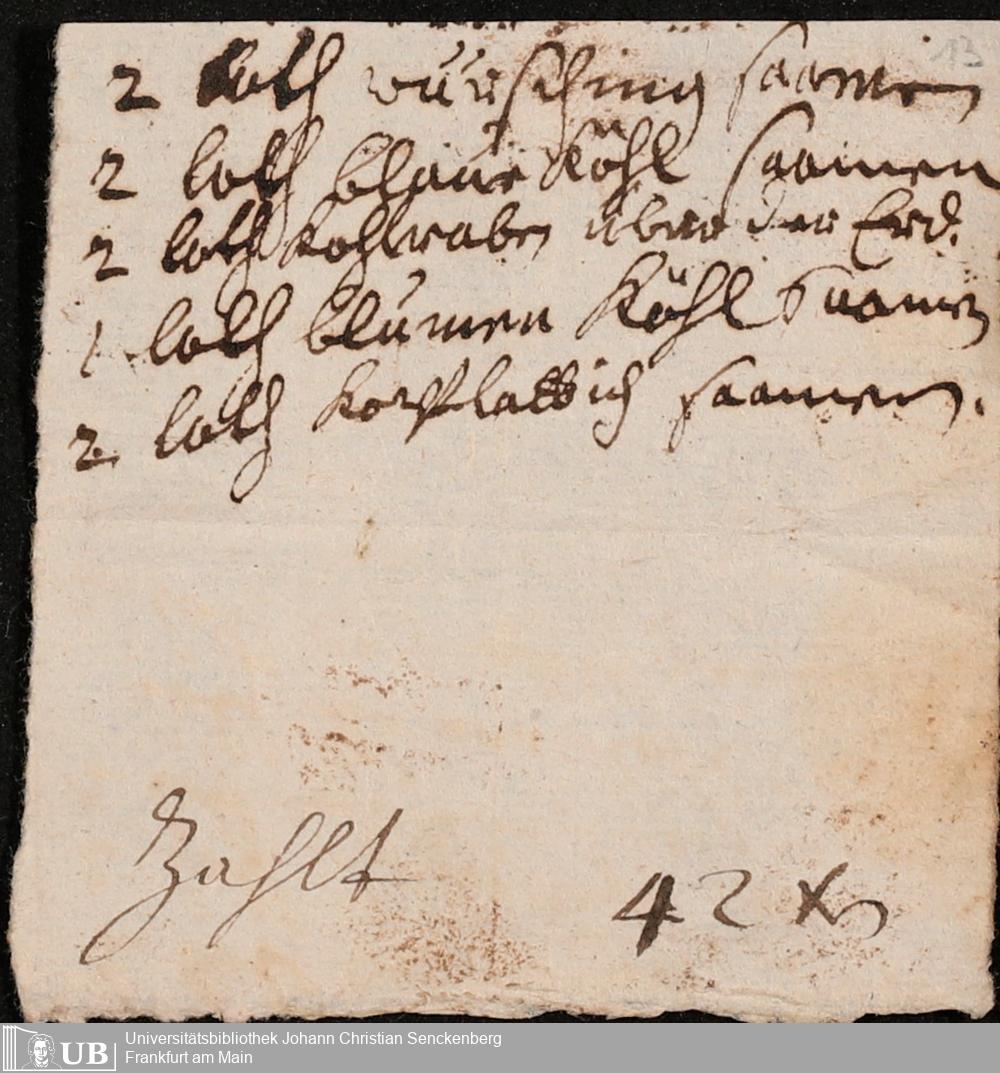 13
2 loth würsching saamen
2 loth blaue Köhl saamen
2 loth Kohlraben über der Erd.
1 loth blumen Köhl Saamen
2 loth Kopflattich saamen.
Zahlt
42 x
UB Universitätsbibliothek Johann Christian Senckenberg
Frankfurt am Main